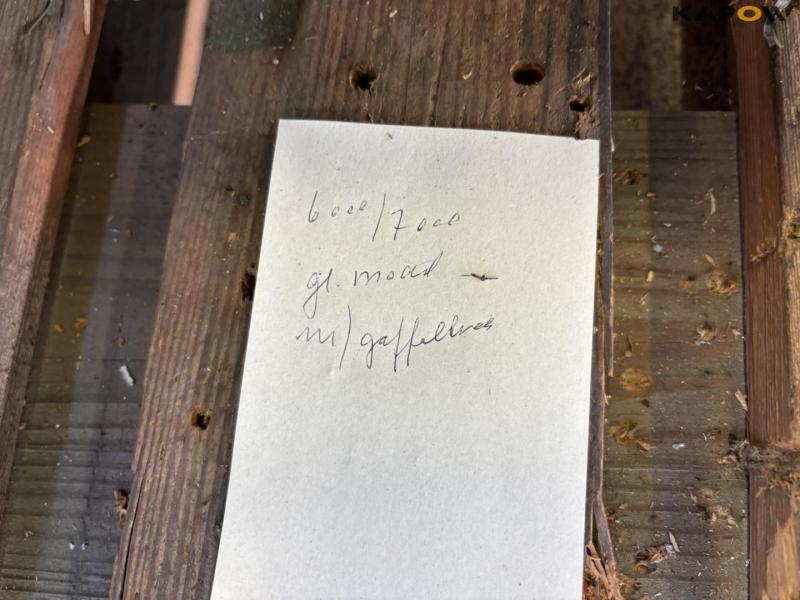 KAPOW
6000/7000
gl. model
m/gaffelbræt